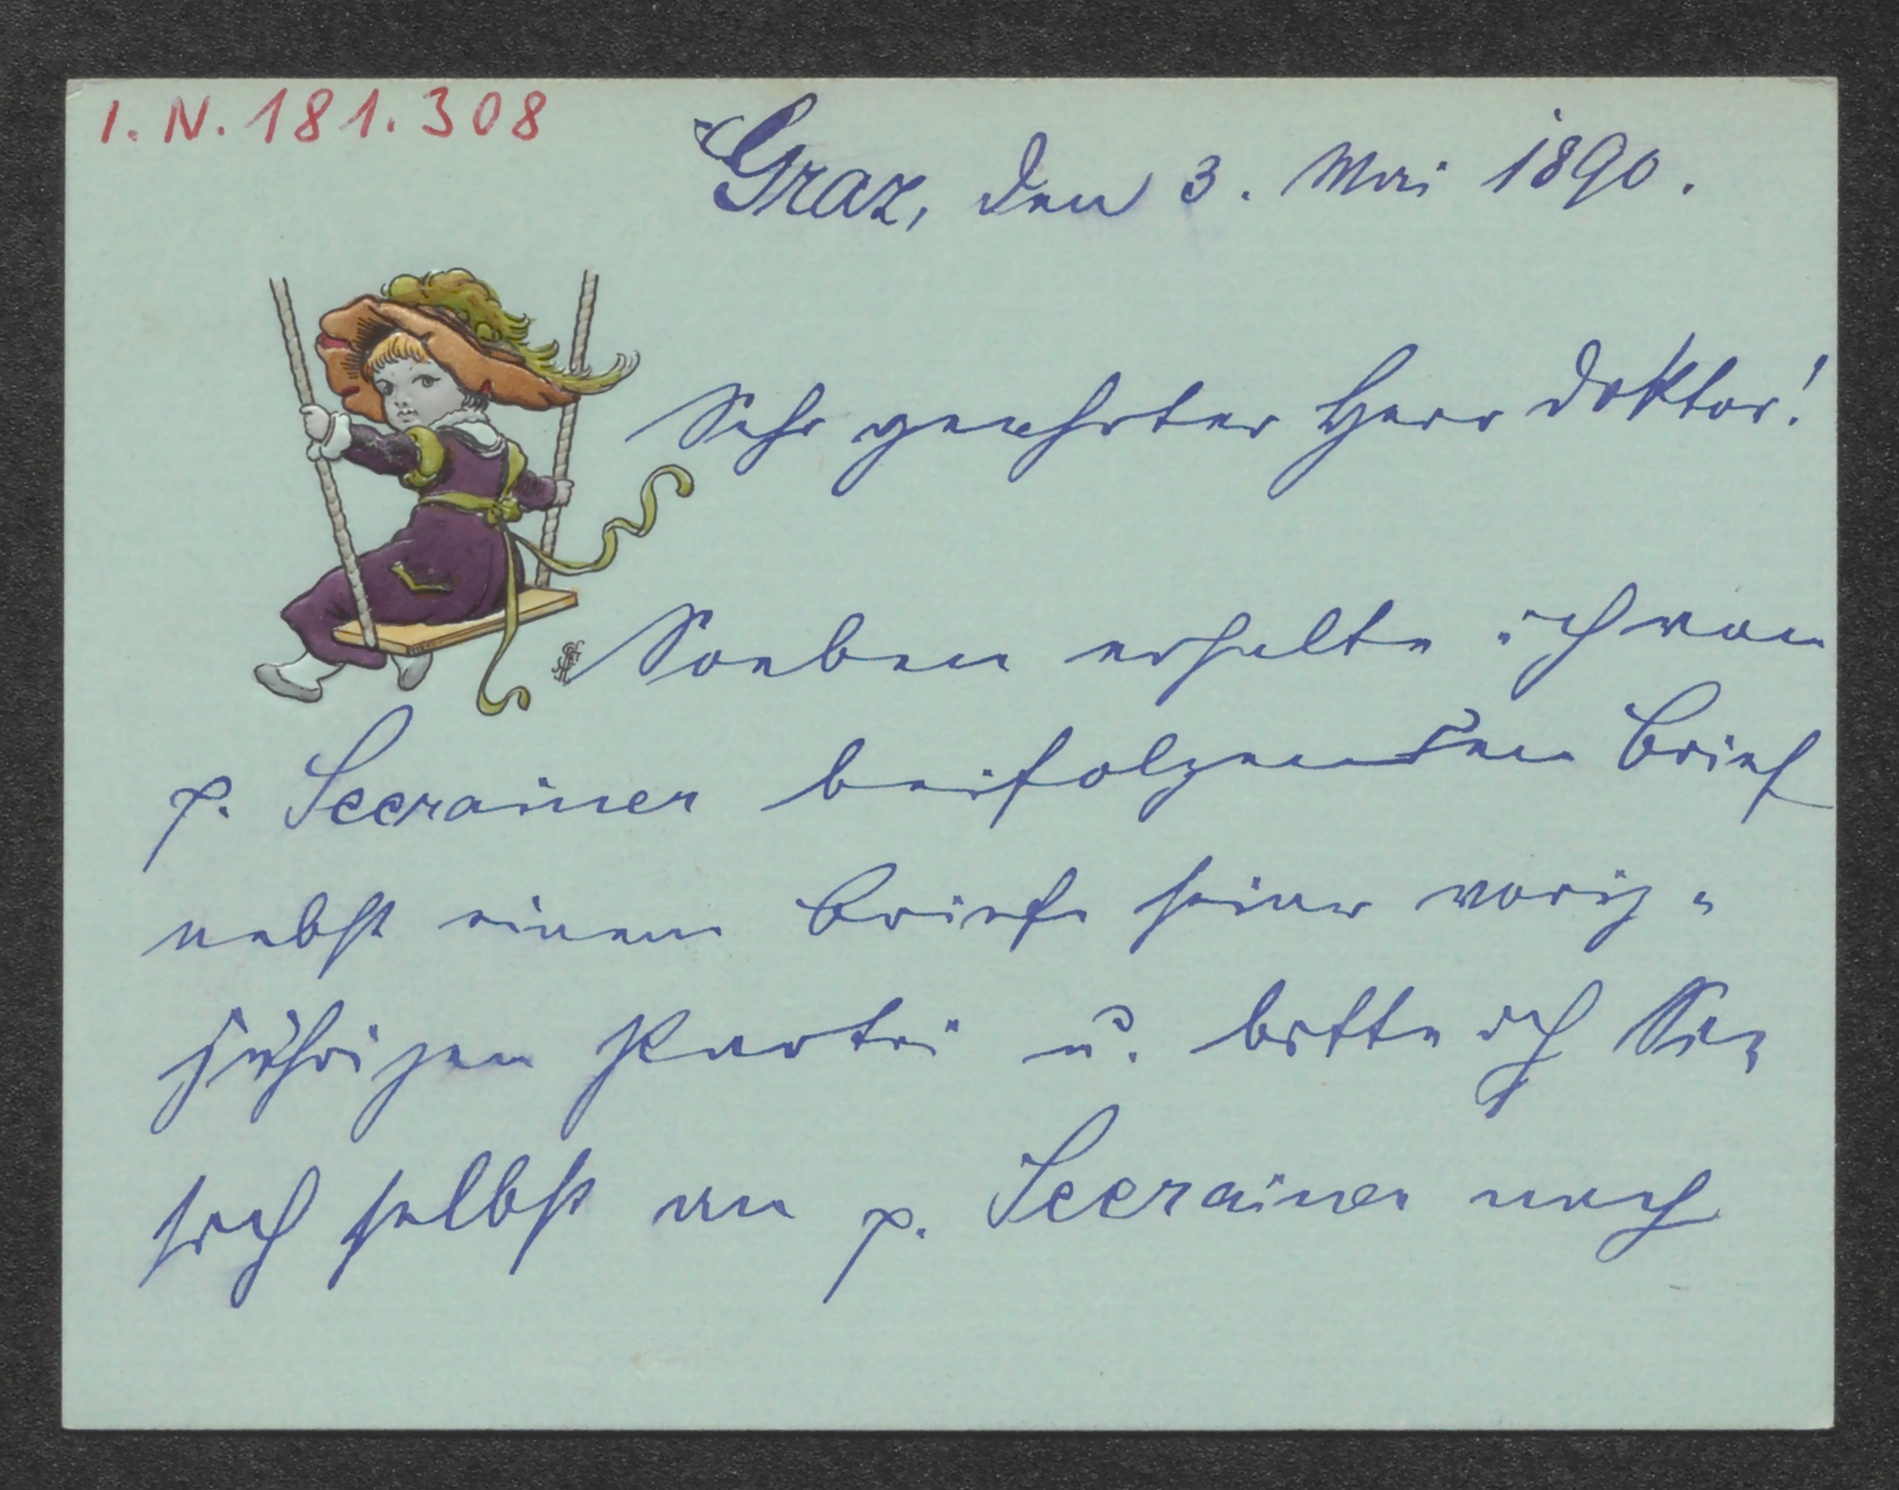 I. N. 181.308
Graz, den 3. Mai 1890.
Sehr geehrter Herr Doktor!
Soeben erhalte ich von
p. Seerainer beifolgenden Brief
nebst einem Briefe seiner vorig=
jährigen Partei u. bitte ich Sie,
sich selbst an p. Seerainer nach